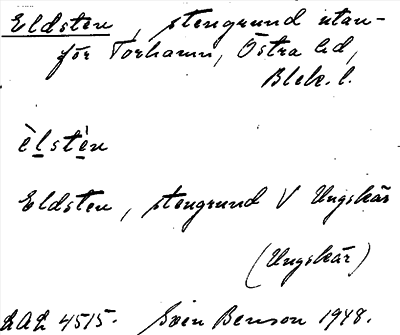 Eldsten, stengrund utan-
för Torhamn, Östra hd,
Blek. l.
èlstèn
Eldsten, stengrund V Ungskär
(Ungskär)
LAL 4515. Sven Benson 1948.